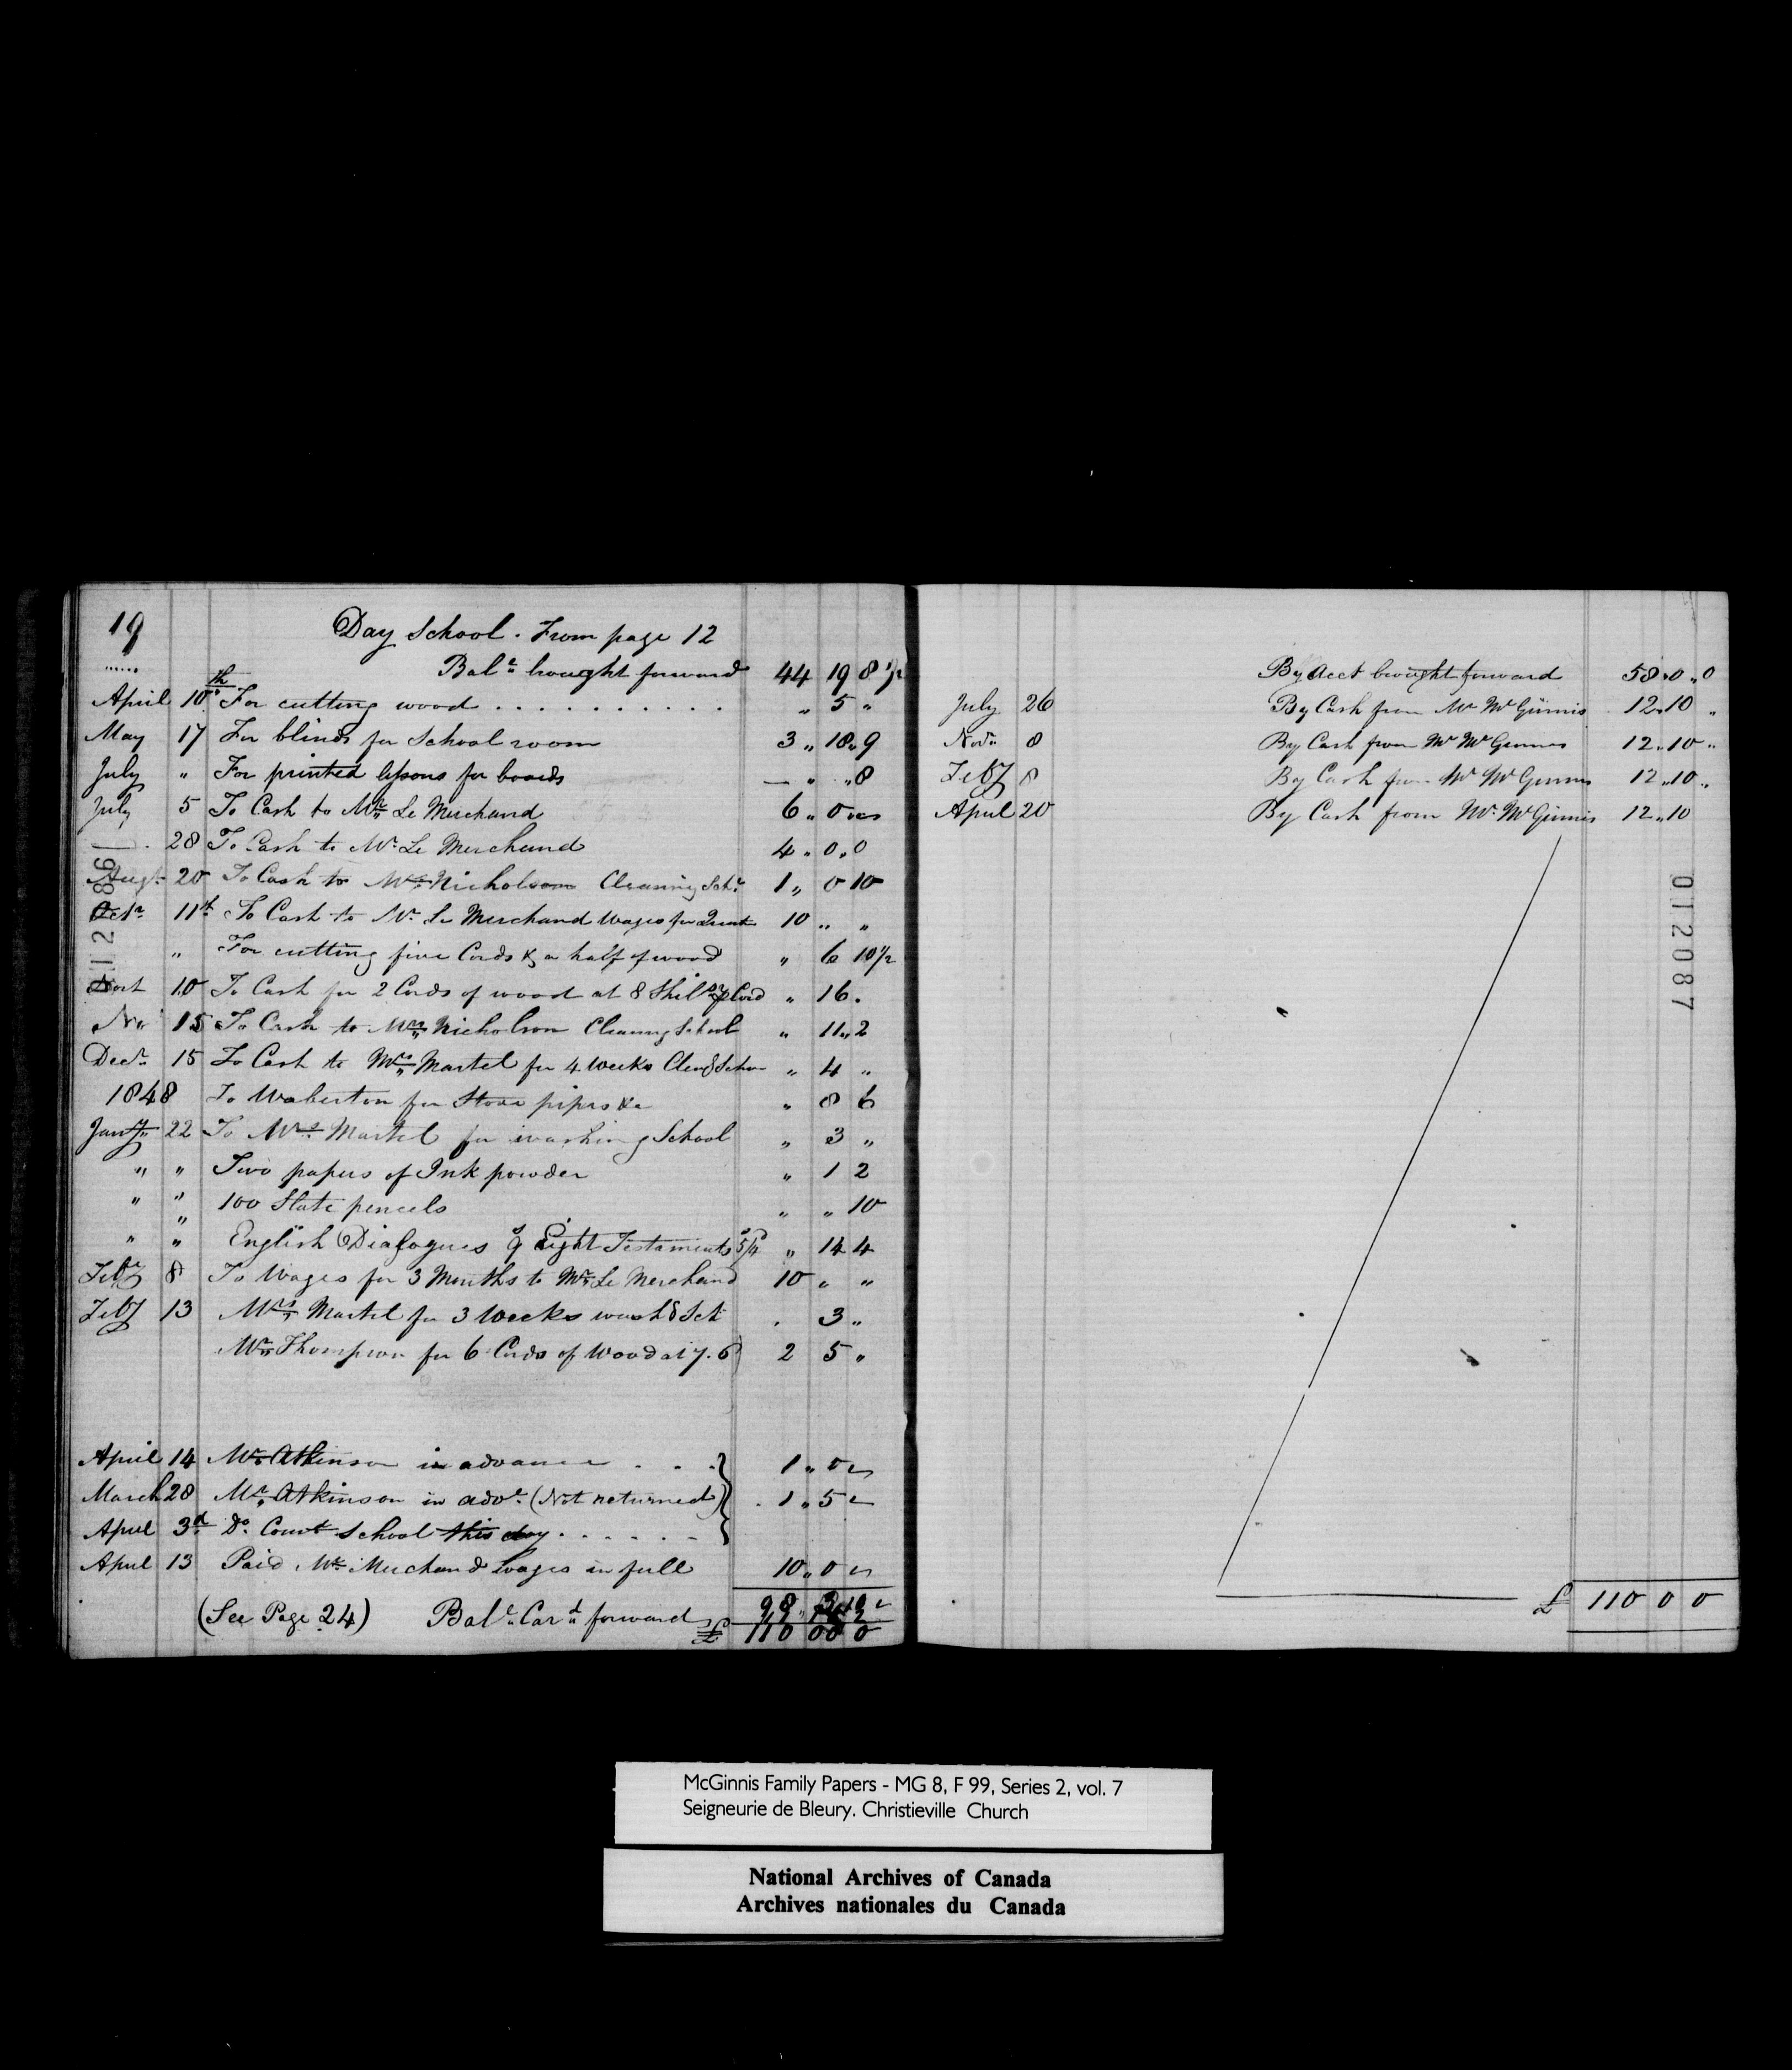 19 Day School. From page 12
Bal.e brought forward 44 19 8 1/2
April 10th For cutting wood . . . . . . . . . . " 5 "
May 17 For blinds for School room 3 " 18 " 9
July " For printed lessons for boards — " " 8
July 5 To Cash to Mr Le Merchand 6 " 0
28 To Cash to Mr Le Merchand 4 " 0 " 0
Augt 20 To Cash to Mrs Nicholson Cleaning Sch. 1 " 0 10
Octr 11th To Cash to Mr Le Merchand Wages for 10 " "
" For cutting five Cords & a half of wood " 6 10 1/2
10 To Cash for 2 Cords of wood at 8 Shil pr Cord " 16 .
No 15 To Cash to Mrs Nicholson Cleaning School " 11 " 2
Decr 15 To Cash to Mrs Martel for 4 weeks " 4 "
1848 To Waberton for Stove pipes &c " 8 6
Jany 22 To Mrs Martel for washing School " 3 "
" " Two papers of Ink powder " 1 2
" " 100 Slate pencels " " 10
" " English Dialogues & Eight Testaments 5/4 " 14 4
Feby 8 To Wages for 3 Months to Mr Le Merchand 10 " "
Feby 13 Mrs Martel for 3 Weeks Sch . 3 "
Mr Thompson for 6 Cords of Wood at 7.6 2 5 "
April 14 Mr Atkinson in advance . . . 1 " 0
March 28 Mr Atkinson in adve (Not returned) 1 " 5
April 3d Do School this day . . . . . .
April 13 Paid Mr Merchand wages in full 10 " 0
98
(See Page 24) Bale Card forward
£ 110 00 0
011286
By Acct brought forward 58 " 0 " 0
July 26 By Cash from Mr McGinnis 12 " 10 "
Novr 8 By Cash from Mr McGinnis 12 " 10 "
Feby 8 By Cash from Mr McGinnis 12 " 10 "
April 20 By Cash from Mr McGinnis 12 " 10
£ 110 0 0
012087
McGinnis Family Papers - MG 8, F 99, Series 2, vol. 7
Seigneurie de Bleury. Christieville Church
National Archives of Canada
Archives nationales du Canada